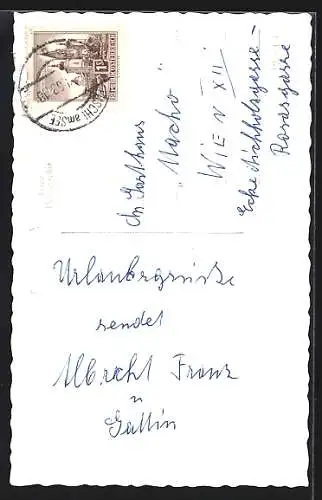 Urlaubsgrüsse
sendet
Albrecht Franz
u
Gattin
An Gasthaus
„Macho"
WIEN XII
Ecke Aichholzgasse-
Rosasgasse